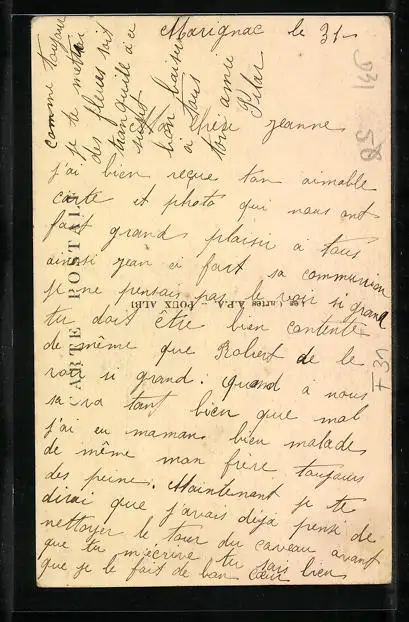 Marignac le 31-
Ma chère Jeanne
j'ai bien reçue ton aimable
carte et photo qui nous ont
fait grands plaisir a tous
ainsi jean ci fait sa communion
je ne pensais pas le voir si grand
tu doit être bien contente
de même que Robert de le
voir si grand. Quand à nous
sa va tant bien que mal
j'ai eu maman bien malade
de même mon frère toujours
des peine. Maintenant je te
dirai que j'avais déjà pensé de
nettoyer le tour du caveau avant
que tu m'écrive tu sais bien
que je le fait de bon cœur
comme toujours
je te mettrai
des fleurs soit
tranquille à ce
sujet
bien baiser
à tous
ton amie
Pilar
CARTE POSTALE
Les Cartes A.P.A. - POUX, ALBI